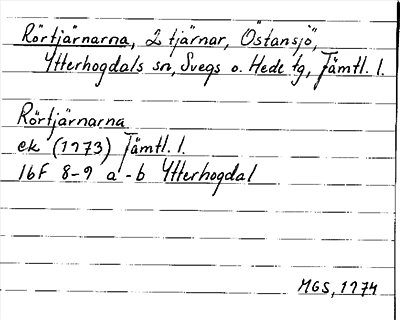 Rörtjärnarna, 2 tjärnar, Östansjö,
Ytterhogdals sn, Svegs o. Hede tg, Jämtl. l.
Rörtjärnarna
ek (1973) Jämtl. l.
16F 8-9 a-b Ytterhogdal
MGS, 1974